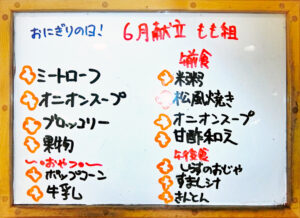 おにぎりの日！ 6月献立 もも組
ミートローフ
オニオンスープ
ブロッコリー
果物
〜・おやつ・〜
ポップコーン
牛乳
午前食
米粥
松風焼き
オニオンスープ
甘酢和え
午後食
しらすのおじや
すまし汁
きんとん